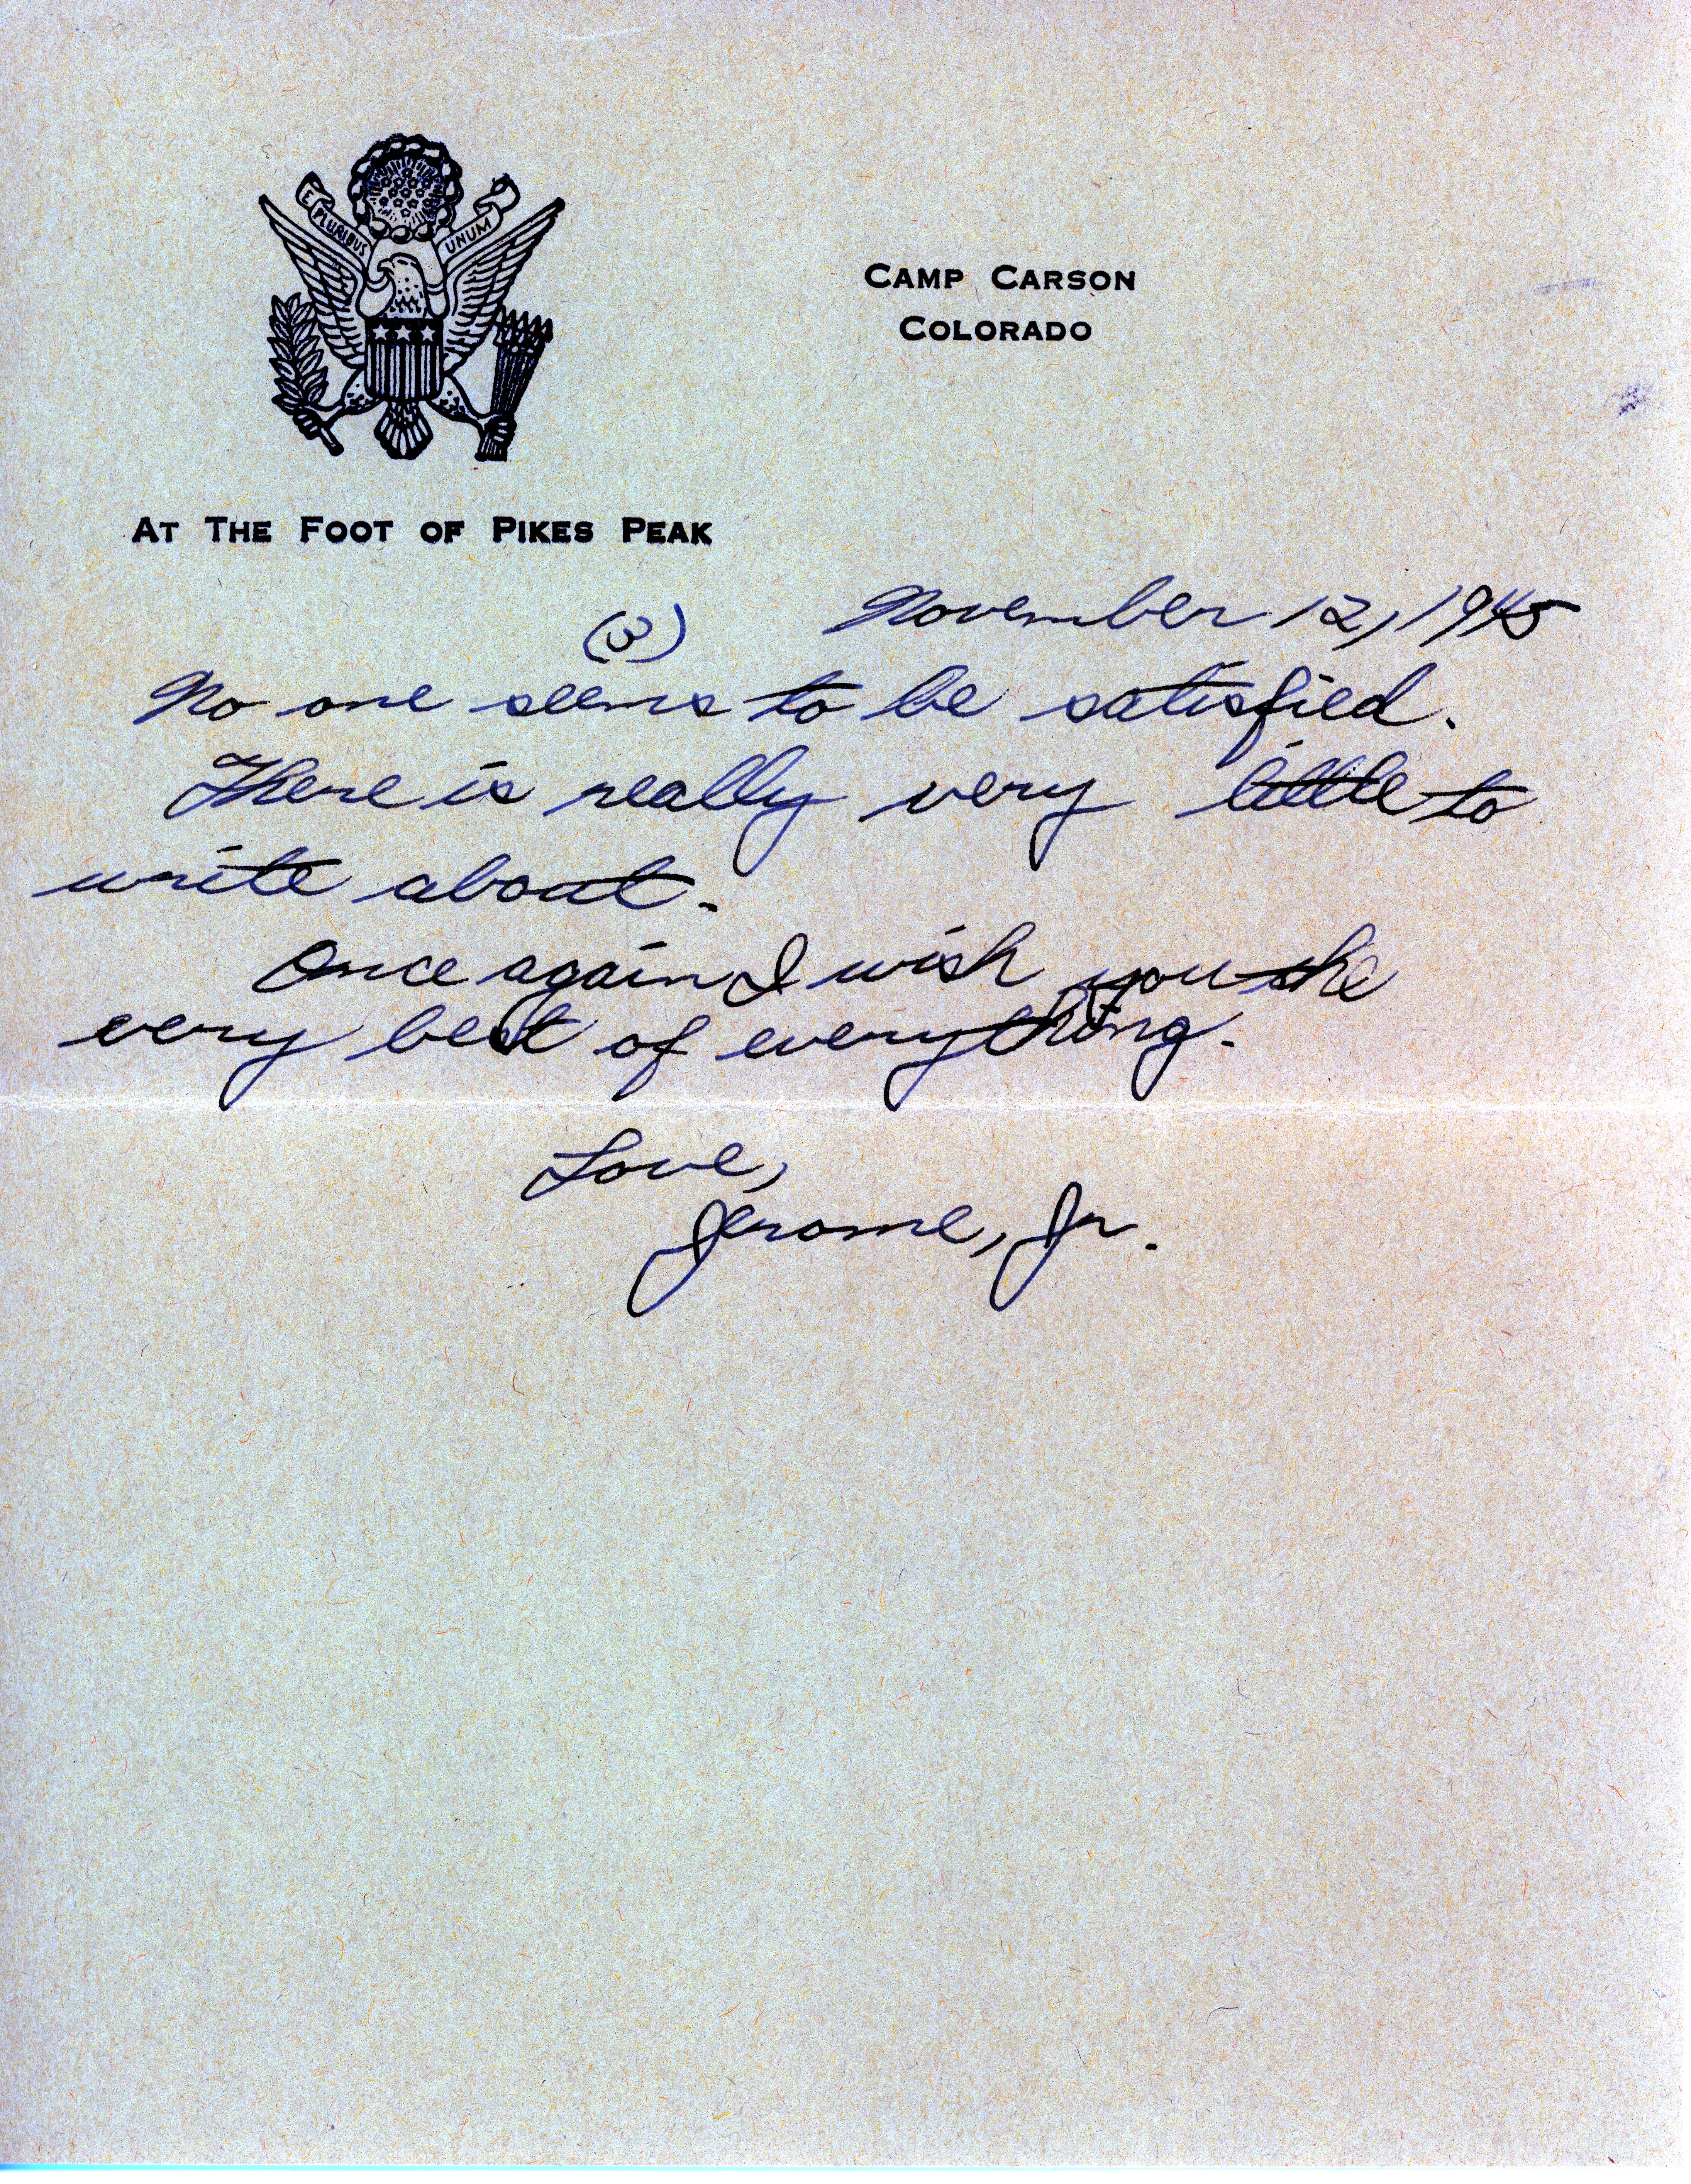 E PLURIBUS UNUM
CAMP CARSON
COLORADO
AT THE FOOT OF PIKES PEAK
(3) November 12, 1945
No one seems to be satisfied.
There is really very little to
write about.
Once again I wish you the
very best of everything.
Love,
Jerome, Jr.